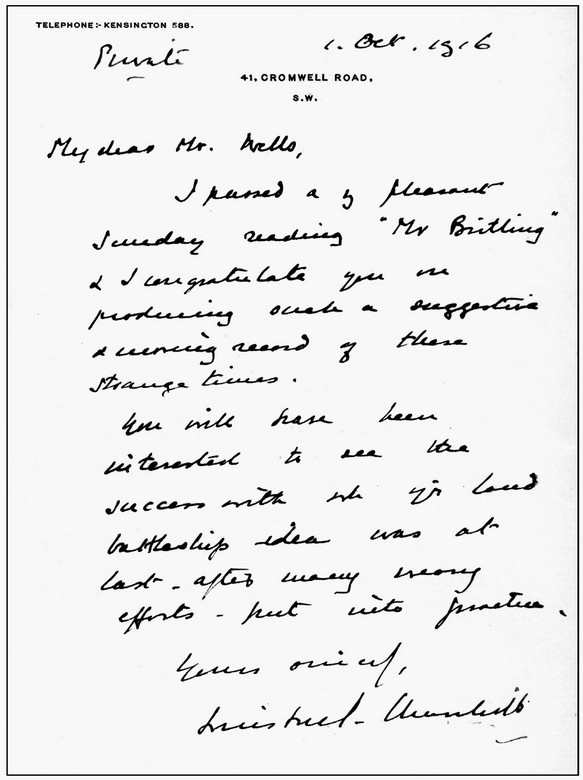 TELEPHONE:- KENSINGTON 588.
1. Oct. 1916
Private
41, CROMWELL ROAD,
S.W.
My dear Mr. Wells,
I passed a vy pleasant
Sunday reading "Mr Britling"
& I congratulate you on
producing such a suggestive
& moving record of these
strange times.
You will have been
interested to see the
success with wh yr land
battleship idea was at
last - after many weary
efforts - put into practice.
Yours sincely,
Winston S. Churchill